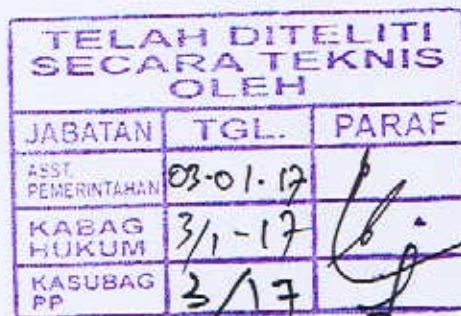 TELAH DITELITI
SECARA TEKNIS
OLEH
JABATAN TGL. PARAF
ASST. PEMERINTAHAN 03-01-17
KABAG HUKUM 3/1-17
KASUBAG PP 3/17